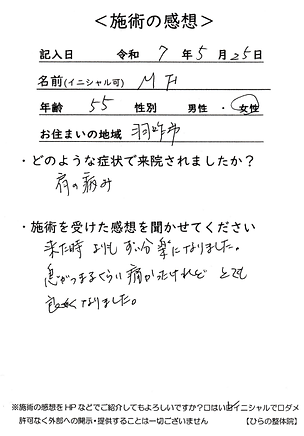 ＜施術の感想＞
記入日 令和 7 年 5 月 25日
名前(イニシャル可) M F
年齢 55 性別 男性 ・ 女性
お住まいの地域 羽咋市
・どのような症状で来院されましたか？
肩の痛み
・施術を受けた感想を聞かせてください
来た時よりも ずい分楽になりました。
息がつまるくらい痛かったけれど とても
良くなりました。
※施術の感想をHPなどでご紹介してもよろしいですか？口はい 口イニシャルで口ダメ
許可なく外部への開示・提供することは一切ございません 【ひらの整体院】